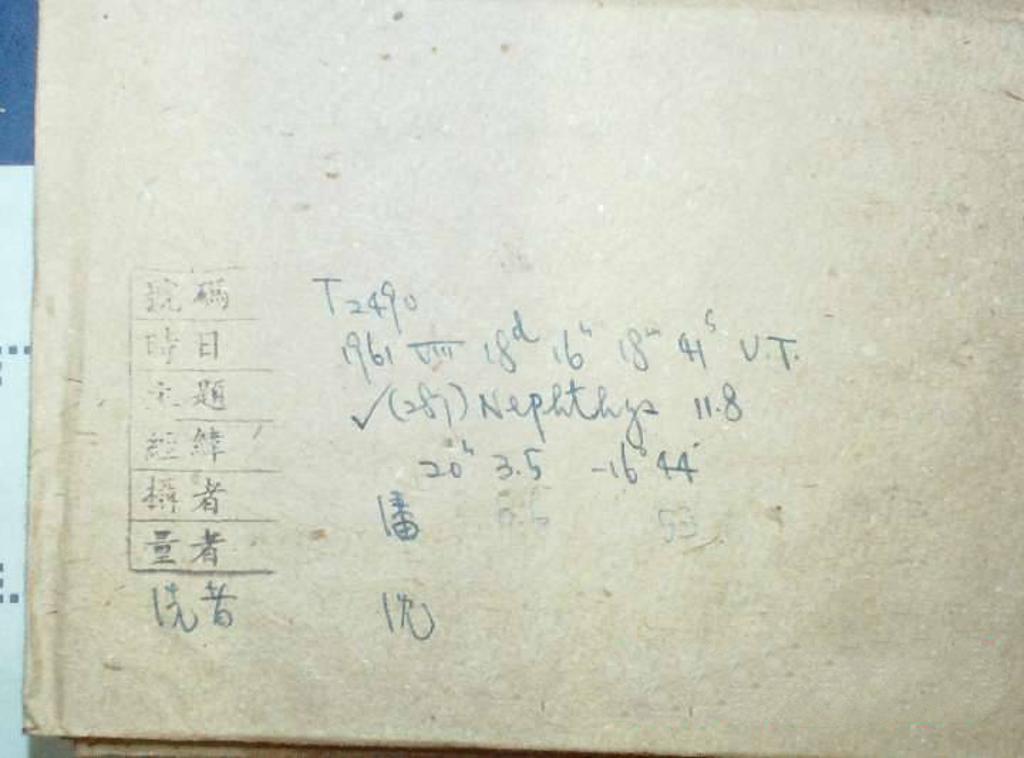 號碼 T2490
時日 1961 VIII 18d 16h 18m 41s U.T.
主題 ✓(287) Nephthys 11.8
經緯 20h 3.5 -16° 44'
攝者 潘
量者
洗者 沈